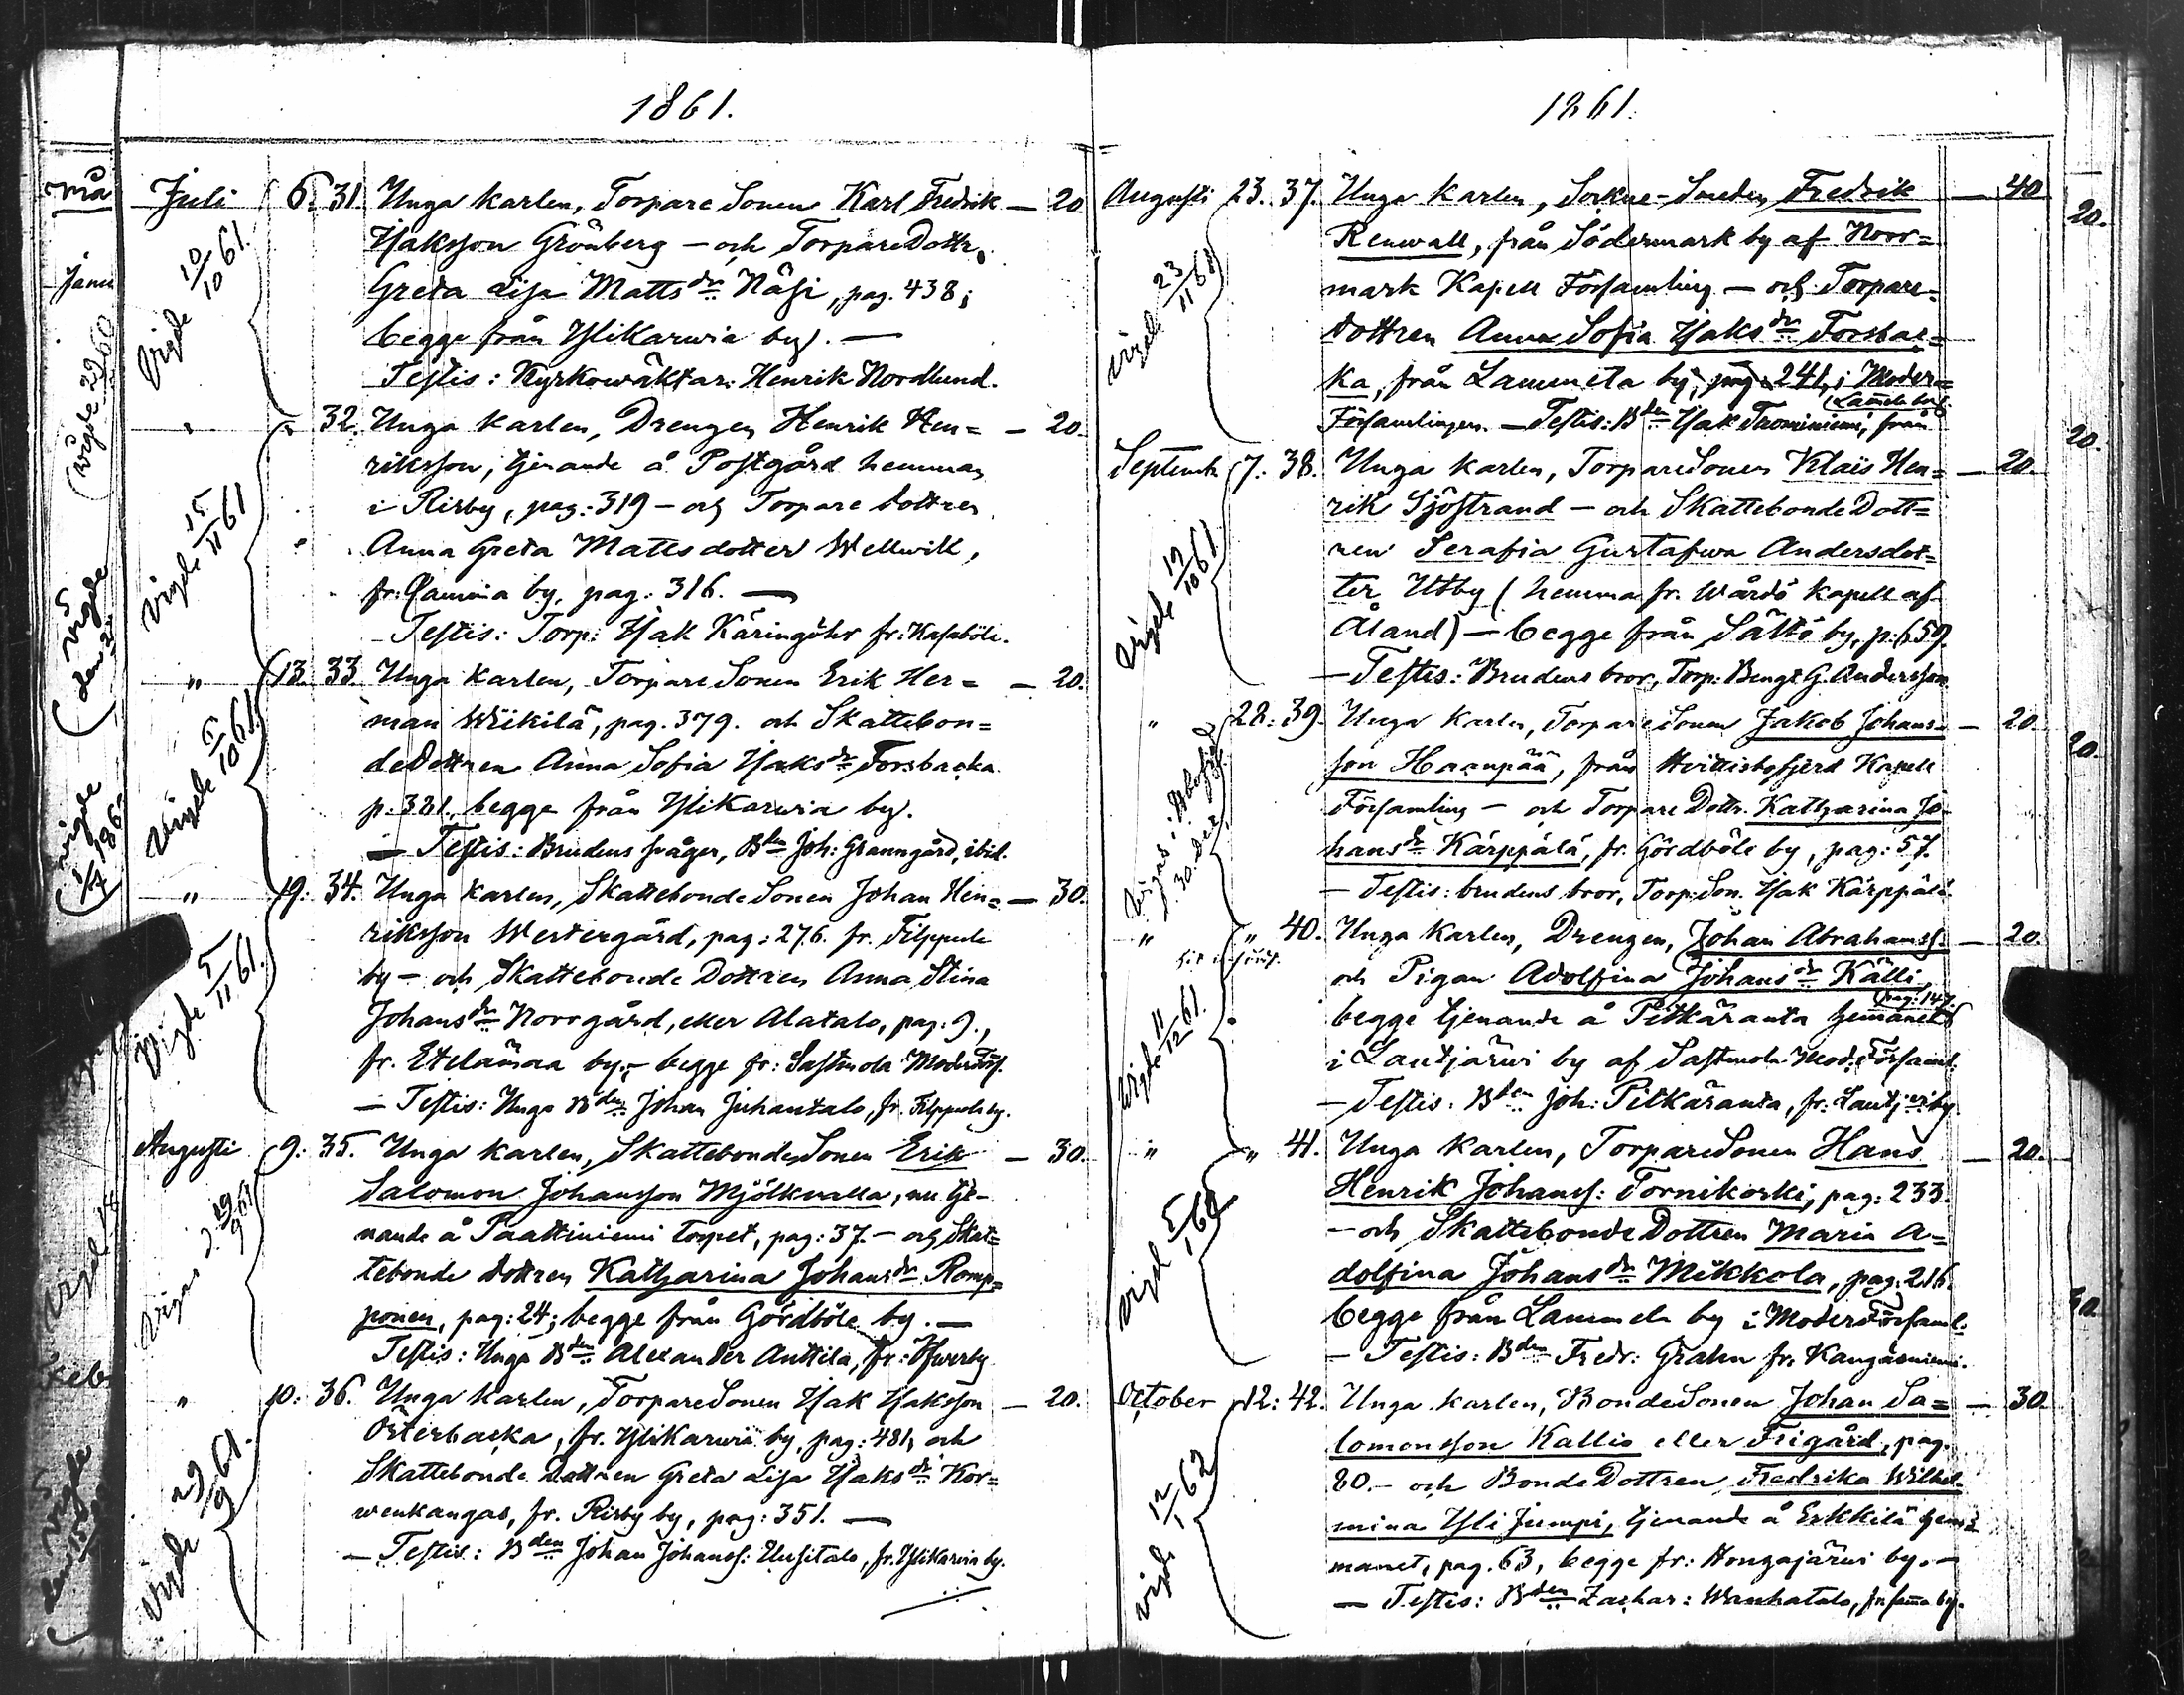 1861.
Juli 6. 31. Unga karlen, Torpare Sonen Karl Fredrik — 20.
Isaksson Grönberg — och Torpare Dottr.
Greta Lisa Mattsdr Näsi, pag. 438;
begge från Ylikarwia by. —
Testis: Kyrkowäktar. Henrik Nordlund.
Vigde 10/10 61.
" " 32. Unga karlen, Drengen Henrik Hen= — 20.
riksson, tjenande å Postgård hemman
i Risby, pag: 319 — och Torpare dottren
Anna Greta Mattsdotter Wellwik,
fr: Lamma by, pag: 316. —
— Testis: Torp: Isak Käringöhr fr: Kasaböle.
Vigde 15/11 61
" 13. 33. Unga karlen, Torpare Sonen Erik Her= — 20.
man Wiikilä, pag. 379. och Skattebon=
deDottren Anna Sofia Isaksdr Forsbacka
p. 381. begge från Ylikarwia by.
— Testis: Brudens swåger, Bden Joh: Granngård, ibid.
Vigde 6/10 61.
" 19. 34. Unga karlen, Skattebonde Sonen Johan Hen= — 30.
riksson Westergård, pag: 276. fr. Filppula
by — och Skattebonde Dottren Anna Stina
Johansdr Norrgård, eller Alatalo, pag: 9.,
fr. Etelämaa by; — begge fr: Sastmola ModerFörs.
— Testis: Unga Bden Johan Juhantalo, fr. Filppula by.
Vigde 5/11 61.
Augusti 9. 35. Unga karlen, Skattebonde Sonen Erik — 30.
Salomon Johansson Mjölkwalla, nu tje-
nande å Paattiniemi torpet, pag: 37. — och Skat=
tebonde dottren Katharina Johansdr Romp=
ponen, pag: 24; begge från Gördböle by. —
Testis: Unga Bden Alexander Anttila, fr: Ofwerby
Vigas d. 29/9 61
" 10: 36. Unga karlen, Torpare Sonen Isak Isaksson — 20.
Österbacka, fr. Ylikarwia by, pag: 481, och
Skattebonde Dottren Greta Lisa Isaksdr Kor=
wenkangas, fr. Risby by, pag: 351. —
— Testis: Bden Johan Johanss: Uusitalo, fr. Ylikarvia by.
Vigde 29/9 61.
1861.
Augusti 23. 37. Unga karlen, Sockne-Smeden Fredrik — 40
Renwall, från Södermark by af Norr=
mark Kapell Församling — och Torpare=
dottren Anna Sofia Isaksdr Forsbac=
ka, från Lammela by, pag: 241, i Moder=
Lammela by.
Församlingen. — Testis: Bden Isak Tuominiemi, från
Vigde 23/11 61
Septemb. 7: 38. Unga karlen, TorpareSonen Klais Hen= — 20.
rik Sjöstrand — och Skattebonde Dott=
ren Serafia Gustafwa Andersdot=
ter Utby (hemma fr. Wårdö kapell af
Åland) — begge från Sälttö by, p: 659.
— Testis: Brudens bror, Torp: Bengt G. Andersson
Vigde 19/10 61.
" 28: 39. Unga karlen, Torpare Sonen Jakob Johans= — 20.
son Haanpää, från Hvittisbofjerd Kapell
Församling — och Torpare Dottr. Katharina Jo=
hansdr Kärppälä, fr. Gördböle by, pag: 57.
— Testis: brudens bror, Torp:Son. Isak Kärppälä
" " 40. Unga karlen, Drengen, Johan Abrahamss: — 20.
och Pigan Adolfina Johansdr Källi,
pag: 147.
begge tjenande å Pitkäranta hemanet
i Lautjärwi by af Sastmola Mod:Församl.
— Testis: Bden Joh: Pitkäranta, fr: Lautj:wi by
Vigde 11/12 61.
" " 41. Unga karlen, TorpareSonen Hans — 20.
Henrik Johanss: Tornikoski, pag: 233.
— och Skattebonde Dottren Maria A=
dolfina Johansdr Mikkola, pag: 216.
begge från Lammela by i ModerFörsaml:
— Testis: Bden Fredr: Grahn fr. Kangasniemi.
Vigd 5/1 62
October 12: 42. Unga karlen, BondeSonen Johan Sa= — 30.
lomonsson Kallio eller Frigård, pag.
80. — och BondeDottren, Fredrika Wilhel=
mina Yli Jumpi, tjenande å Erkkilä hem=
manet, pag. 63, begge fr: Hongajärwi by. —
— Testis: Bden Zachar: Wanhatalo, fr samma by.
Vigde 12/1 62
20.
20.
20.
30.